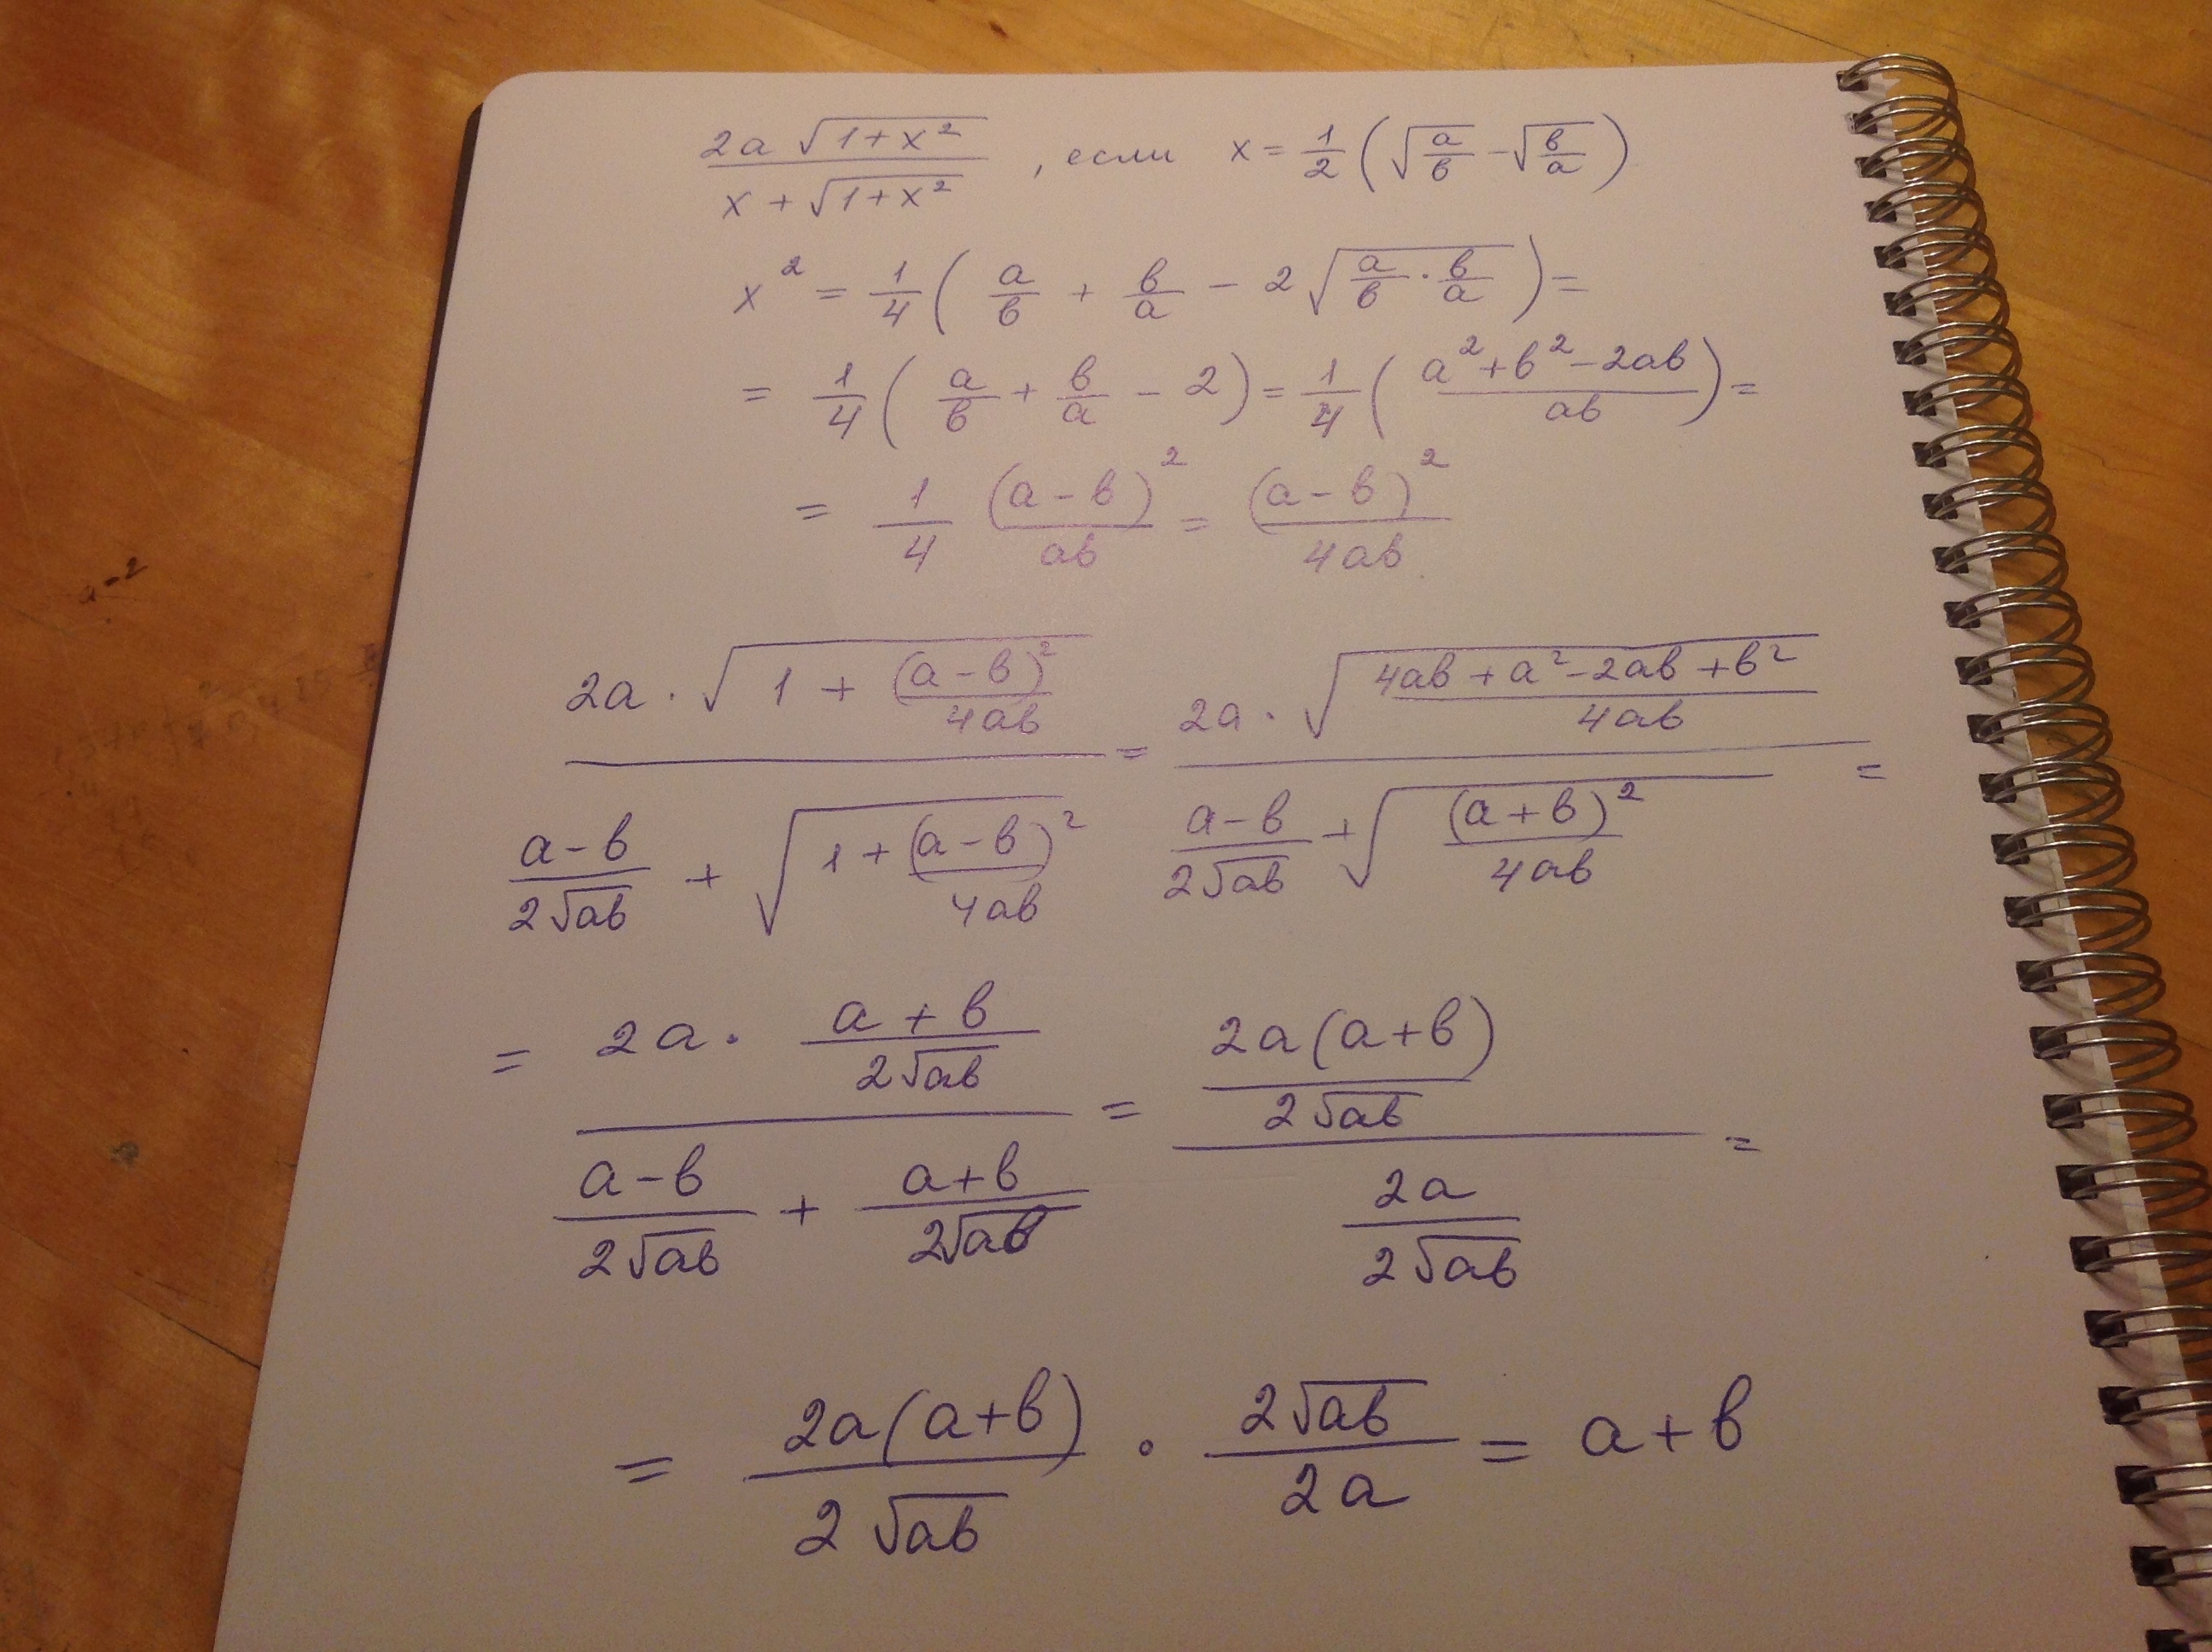 2a√(1+x²) / (x+√(1+x²)) , если x = 1/2 (√(a/b) - √(b/a))
x² = 1/4 (a/b + b/a - 2√(a/b · b/a)) =
= 1/4 (a/b + b/a - 2) = 1/4 ((a²+b²-2ab)/ab) =
= 1/4 (a-b)²/ab = (a-b)²/4ab
(2a · √(1 + (a-b)²/4ab)) / ((a-b)/2√ab + √(1 + (a-b)²/4ab)) = (2a · √((4ab+a²-2ab+b²)/4ab)) / ((a-b)/2√ab + √((a+b)²/4ab)) =
= (2a · (a+b)/2√ab) / ((a-b)/2√ab + (a+b)/2√ab) = (2a(a+b)/2√ab) / (2a/2√ab) =
= 2a(a+b)/2√ab · 2√ab/2a = a+b
a-2